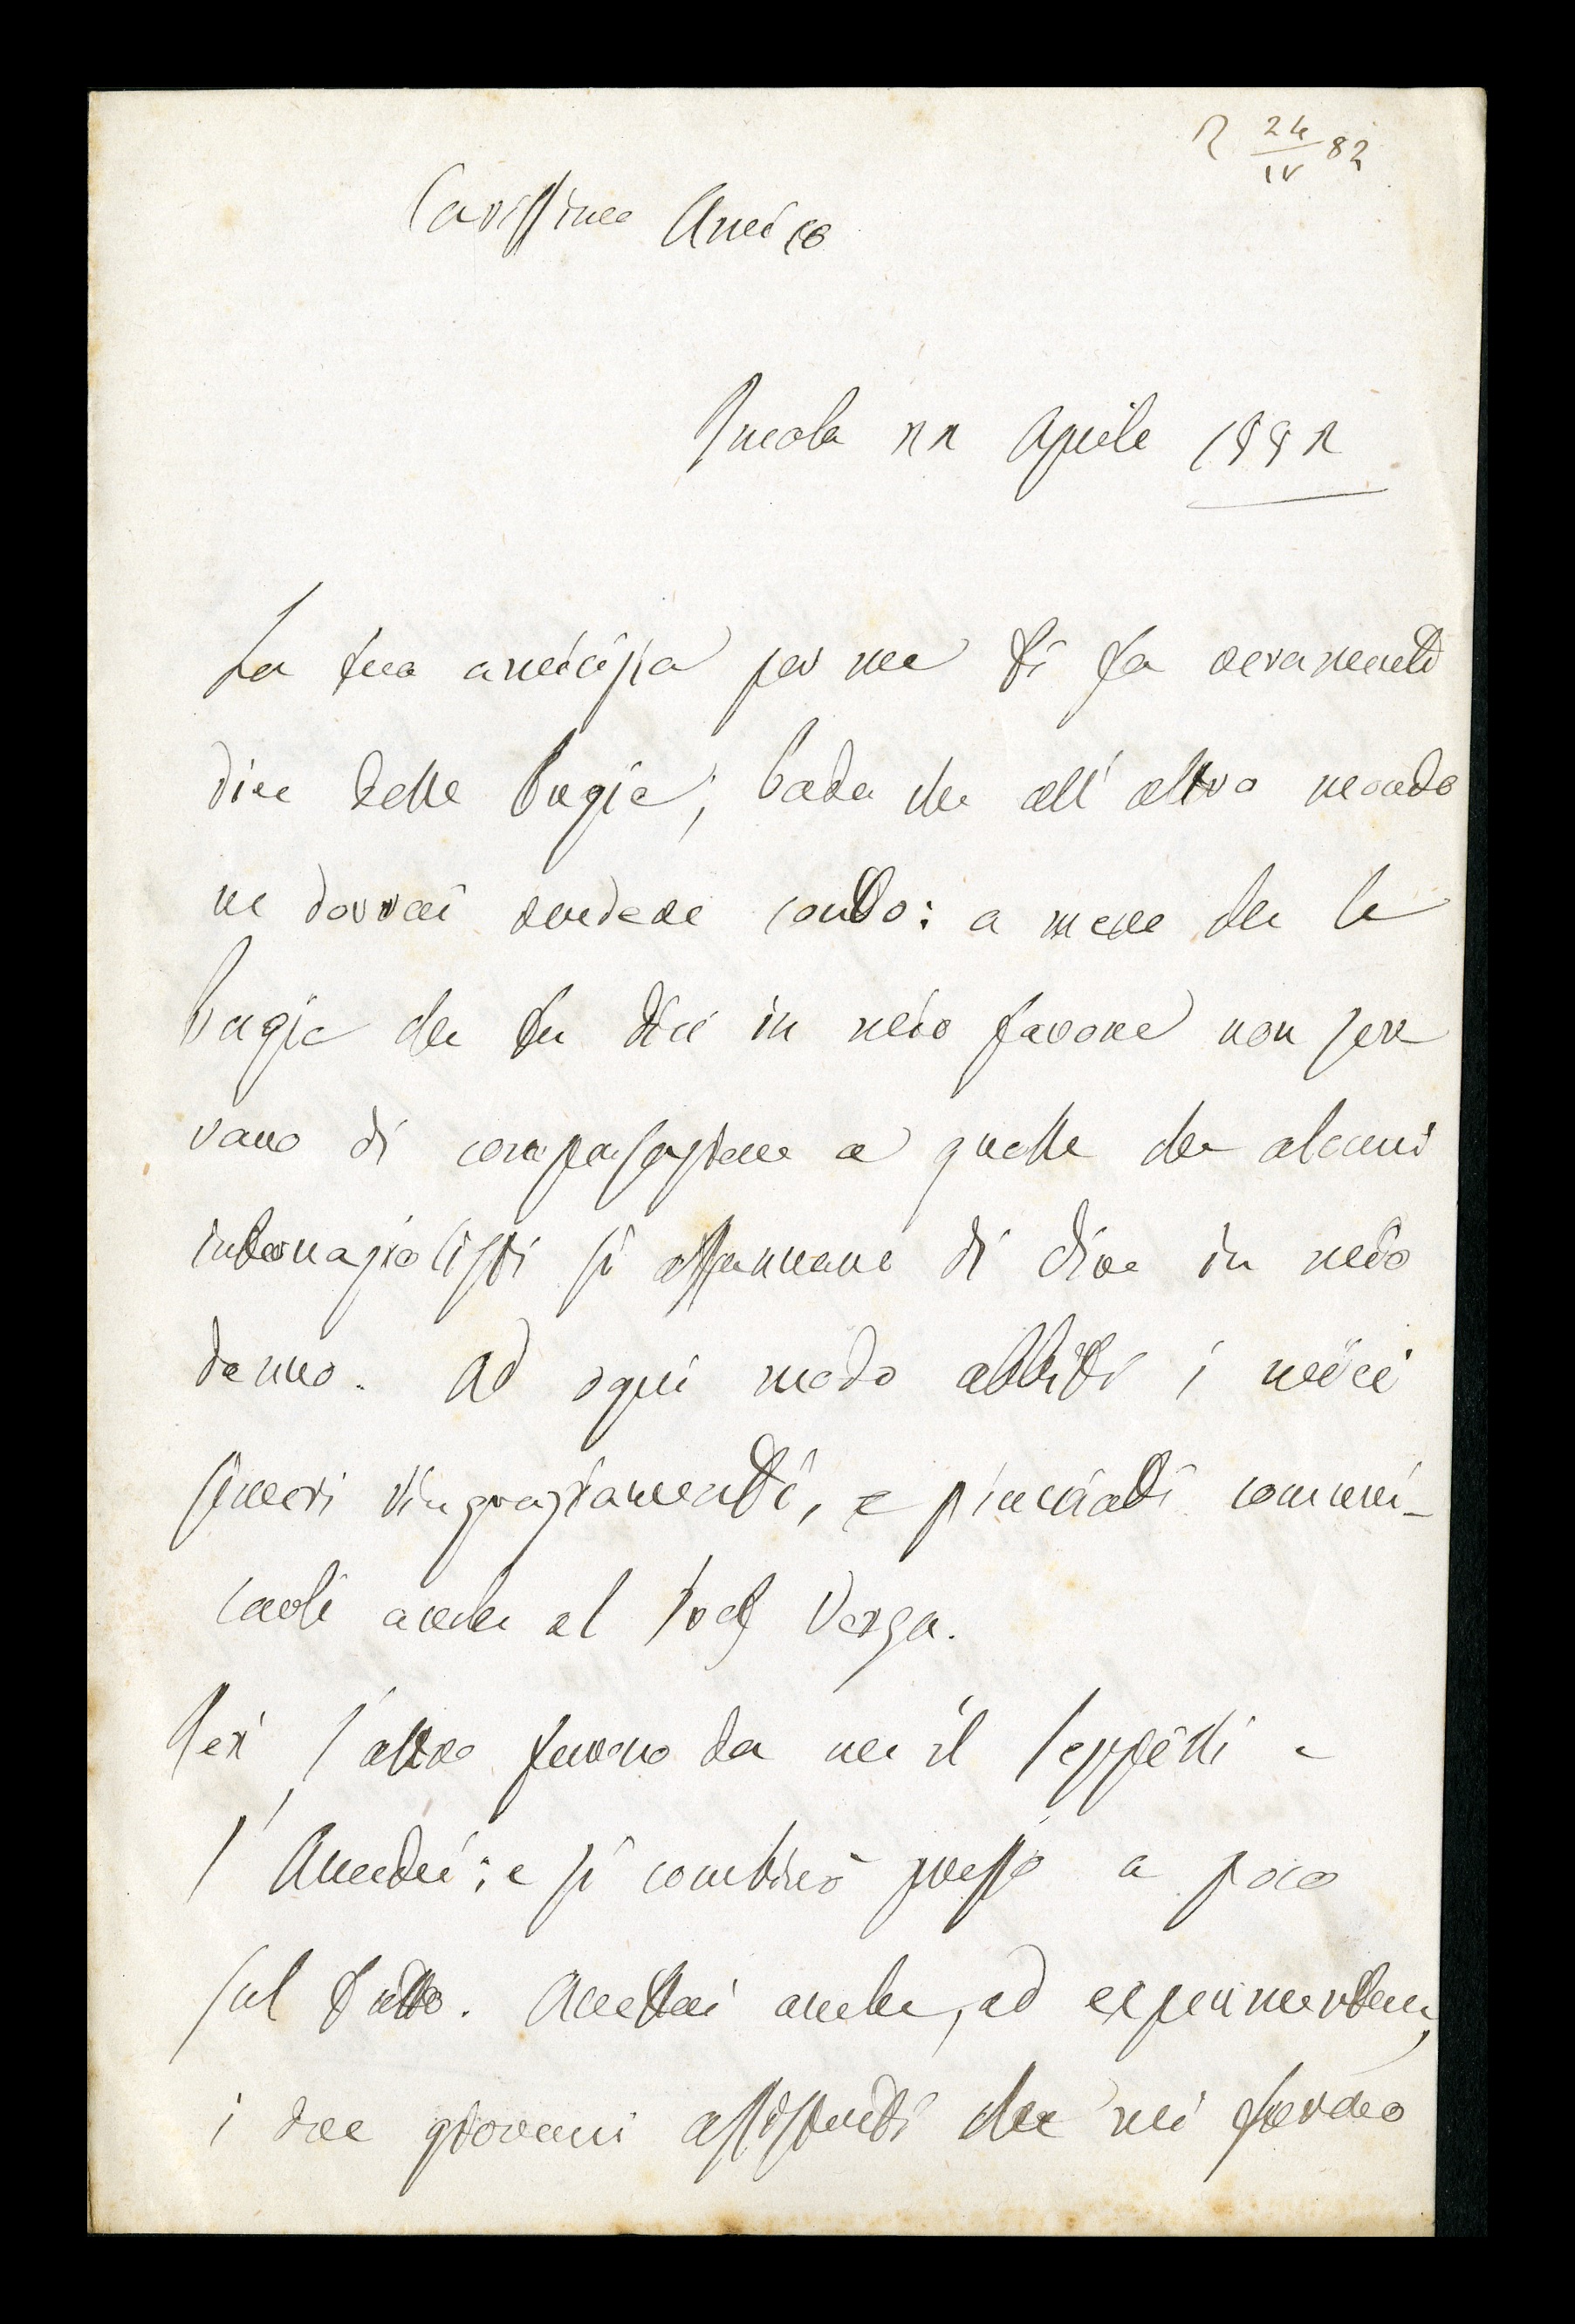 R 24/IV 82
Carissimo Amico
Imola 22 Aprile 1882
La tua amicizia per me ti fa veramente
dire delle bugie; bada che all'altro mondo
ne dovrai rendere conto: a meno che le
bugie che tu dici in mio favore non ser
vano di compensazione a quelle che alcuni
internazionalisti si affannano di dire in mio
danno. Ad ogni modo abbiti i miei
sinceri ringraziamenti, e piacciati comuni-
carli anche al Prof Verga.
Ieri l'altro furono da me il Seppilli e
l'Amadei; e si combinò presso a poco
sul tutto. Accettai anche, ad experimentum,
i due giovani assistenti che mi